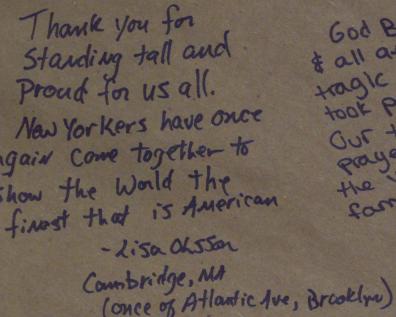 Thank you for
Standing tall and
Proud for us all.
New Yorkers have once
again come together to
show the World the
finest that is American
- Lisa Olsson
Cambridge, MA
(once of Atlantic Ave, Brooklyn)
God B
& all a
tragic
took p
Our t
Praye
the
fam